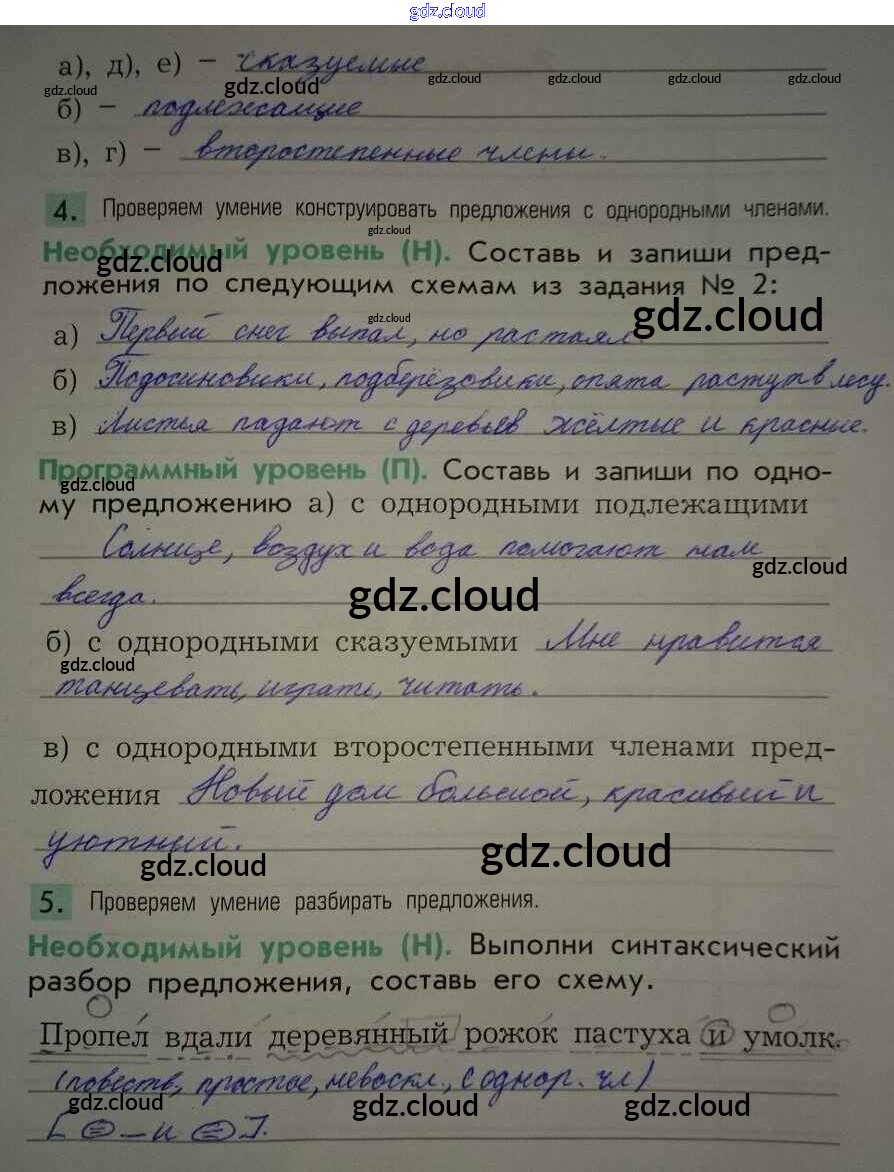 gdz.cloud
а), д), е) – сказуемые
gdz.cloud gdz.cloud gdz.cloud gdz.cloud gdz.cloud gdz.cloud
б) – подлежащие
в), г) – второстепенные члены.
4. Проверяем умение конструировать предложения с однородными членами.
gdz.cloud
Необходимый уровень (Н). Составь и запиши пред-
gdz.cloud
ложения по следующим схемам из задания № 2:
gdz.cloud gdz.cloud
а) Первый снег выпал, но растаял.
б) Подосиновики, подберёзовики, опята растут в лесу.
в) Листья падают с деревьев жёлтые и красные.
Программный уровень (П). Составь и запиши по одно-
gdz.cloud
му предложению а) с однородными подлежащими
Солнце, воздух и вода помогают нам
gdz.cloud
всегда.
gdz.cloud
б) с однородными сказуемыми Мне нравится
gdz.cloud
танцевать, играть, читать.
в) с однородными второстепенными членами пред-
ложения Новый дом большой, красивый и
уютный.
gdz.cloud gdz.cloud
5. Проверяем умение разбирать предложения.
Необходимый уровень (Н). Выполни синтаксический
разбор предложения, составь его схему.
Пропел вдали деревянный рожок пастуха и умолк.
(повеств., простое, невоскл., с однор. чл)
gdz.cloud gdz.cloud gdz.cloud
[ – и ].